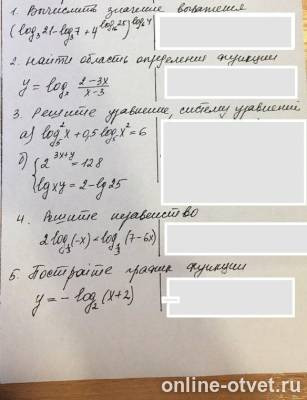 1. Вычислить значение выражения
(log₃21-log₃7+4^log₁₆25)^log₆4
2. Найти область определения функции
y = log₂ (2-3x)/(x-3)
3. Решите уравнение, систему уравнений
а) log₅²x + 0,5 log₅x² = 6
б) { 2^(3x+y) = 128
lg xy = 2 - lg 25
4. Решите неравенство
2 log₃(-x) < log₃(7-6x)
5. Постройте график функции
y = - log₂(x+2)
online-otvet.ru